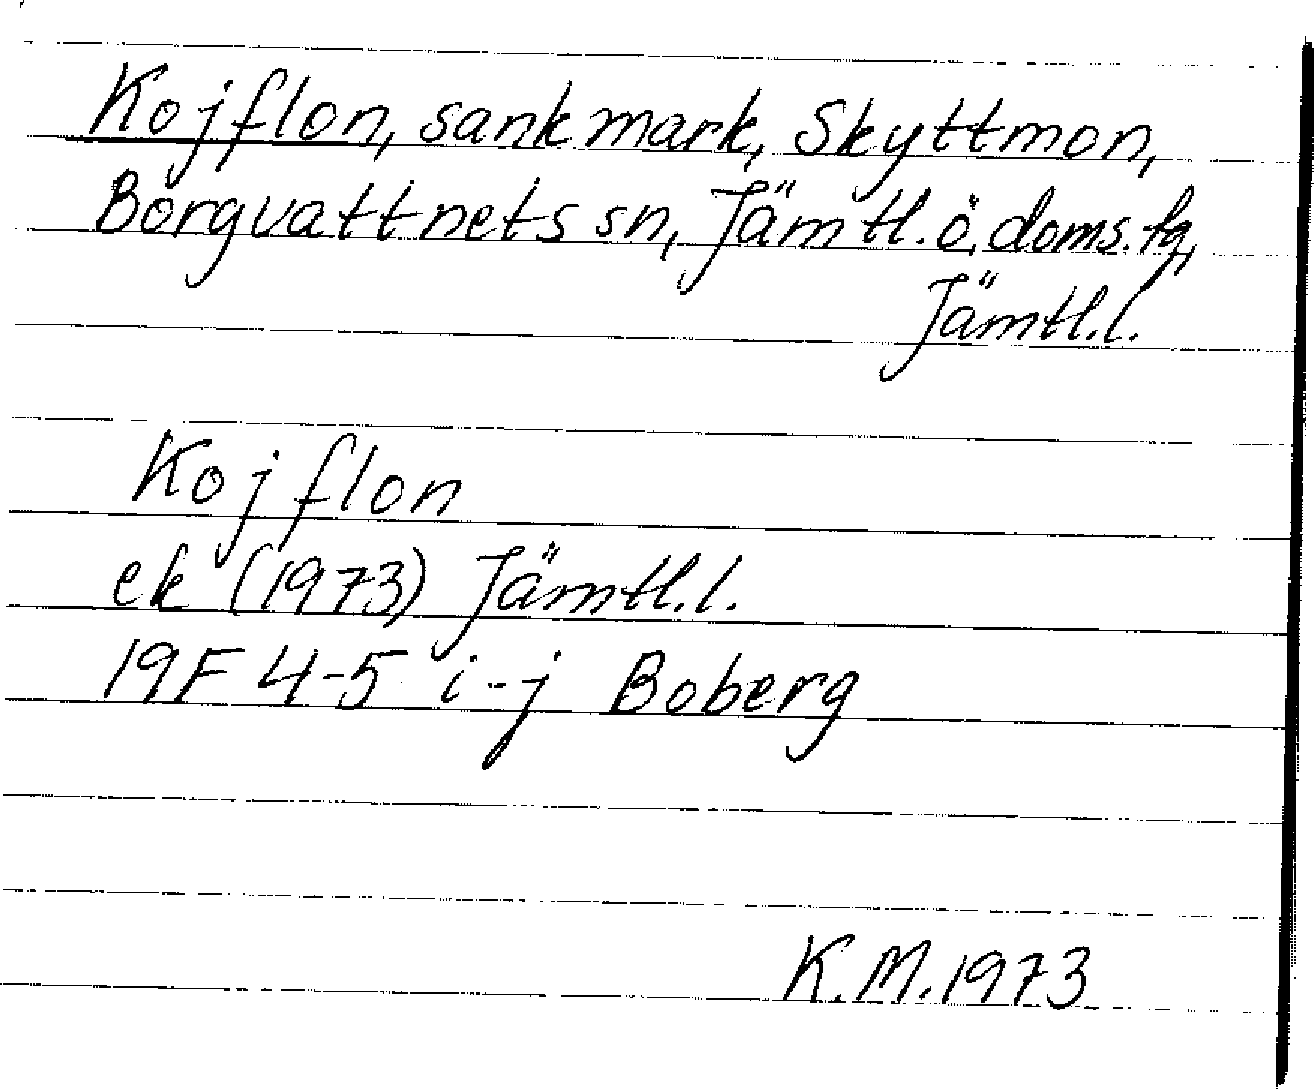 Kojflon, sankmark, Skyttmon,
Borgvattnets sn, Jämtl. ö. doms. fg,
Jämtl. l.
Kojflon
ek (1973) Jämtl. l.
19F 4-5 i-j Boberg
K.M. 1973